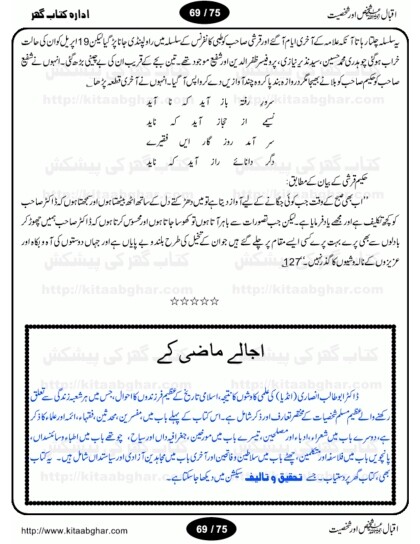 ادارہ کتاب گھر
69 / 75
اقبال شخص اور شخصیت
یہ سلسلہ چلتا رہا تا آنکہ علامہ کے آخری ایام آگئے اور قرشی صاحب کو طبی کانفرنس کے سلسلہ میں راولپنڈی جانا پڑ گیا لیکن 19 اپریل کو ان کی حالت
خراب ہو گئی چوہدری محمد حسین، سید نذیر نیازی، پروفیسر مظفر الدین اور شفیع موجود تھے۔ تین بجے کے قریب ان کی بے چینی بڑھ گئی۔ انہوں نے شفیع
صاحب کو حکیم صاحب کو بلانے بھیجا مگر دروازہ بند پا کر وہ چند آوازیں دے کر واپس آ گیا۔ انہوں نے آخری قطعہ پڑھا۔
سرور رفتہ باز آید کہ ناید
نسیمے از حجاز آید کہ ناید
سر آمد روز گار ایں فقیرے
دگر دانائے راز آید کہ ناید
حکیم قرشی کے بیان کے مطابق:
"اب بھی صبح کے وقت جب کوئی جگانے کے لیے آواز دیتا ہے تو میں دھڑکتے دل کے ساتھ اٹھ بیٹھتا ہوں اور سمجھتا ہوں کہ ڈاکٹر صاحب
کو کچھ تکلیف ہے اور مجھے یاد فرمایا ہے۔ لیکن جب تصورات سے باہر آتا ہوں تو کھو سا جاتا ہوں اور محسوس کرتا ہوں کہ ڈاکٹر صاحب ہمیں چھوڑ کر
بادلوں سے بھی پرے بہت پرے کسی ایسے مقام پر چلے گئے ہیں جو ان کے تخیل کی طرح بلند و بے پایاں ہے اور جہاں دوستوں کی آہ و بکا اور
عزیزوں کے نالہ و شیون کا گذر نہیں۔" 127
☆☆☆☆☆
اجالے ماضی کے
ڈاکٹر ابو طالب انصاری (انڈیا) کی علمی کاوشوں کا نتیجہ، اسلامی تاریخ کے عظیم فرزندوں کا احوال، جس میں ہر شعبہ زندگی سے تعلق
رکھنے والے عظیم مسلم شخصیات کے مختصر تعارف اور ذکر شامل ہے۔ اس کتاب کے پہلے باب میں مفسرین، محدثین، فقہاء، ائمہ اور علماء کا ذکر
ہے، دوسرے باب میں شعراء، ادباء اور مصلحین، تیسرے باب میں مورخین، جغرافیہ داں اور سیاح، چوتھے باب میں اطباء اور سائنسداں،
پانچویں باب میں فلاسفہ اور متکلمین، چھٹے باب میں سلاطین و فاتحین اور آخری باب میں مجاہدین آزادی اور سیاستداں شامل ہیں۔ یہ کتاب
بھی کتاب گھر پر دستیاب۔ جسے تحقیق و تالیف سیکشن میں دیکھا جا سکتا ہے۔
http://www.kitaabghar.com
69 / 75
اقبال شخص اور شخصیت